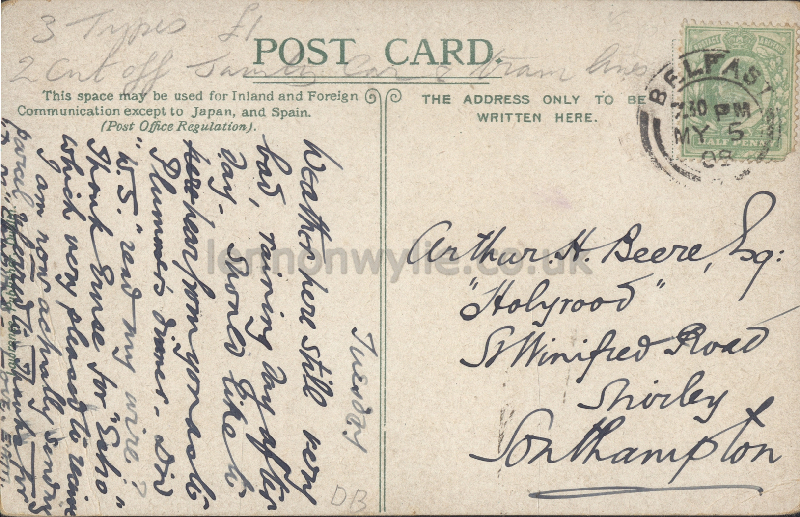 3 Types £1
2 Cut off
POST CARD.
This space may be used for Inland and Foreign
Communication except to Japan, and Spain.
(Post Office Regulation).
THE ADDRESS ONLY TO BE
WRITTEN HERE.
BELFAST
30 PM
MY 5
08
POSTAGE
HALF PENNY
Tuesday
Weather here still very
bad, raining day after
day. Should like to
hear from you as to
Plummer's dinner. Did
"W.S." read my wire?
Thank Ernse for "Echo"
which very pleased to receive
I am now actually sending
parcel
Thanks for
Arthur H. Beere, Esq:
"Holyrood"
St Winifred Road
Shirley
Southampton
DB
lennonwylie.co.uk